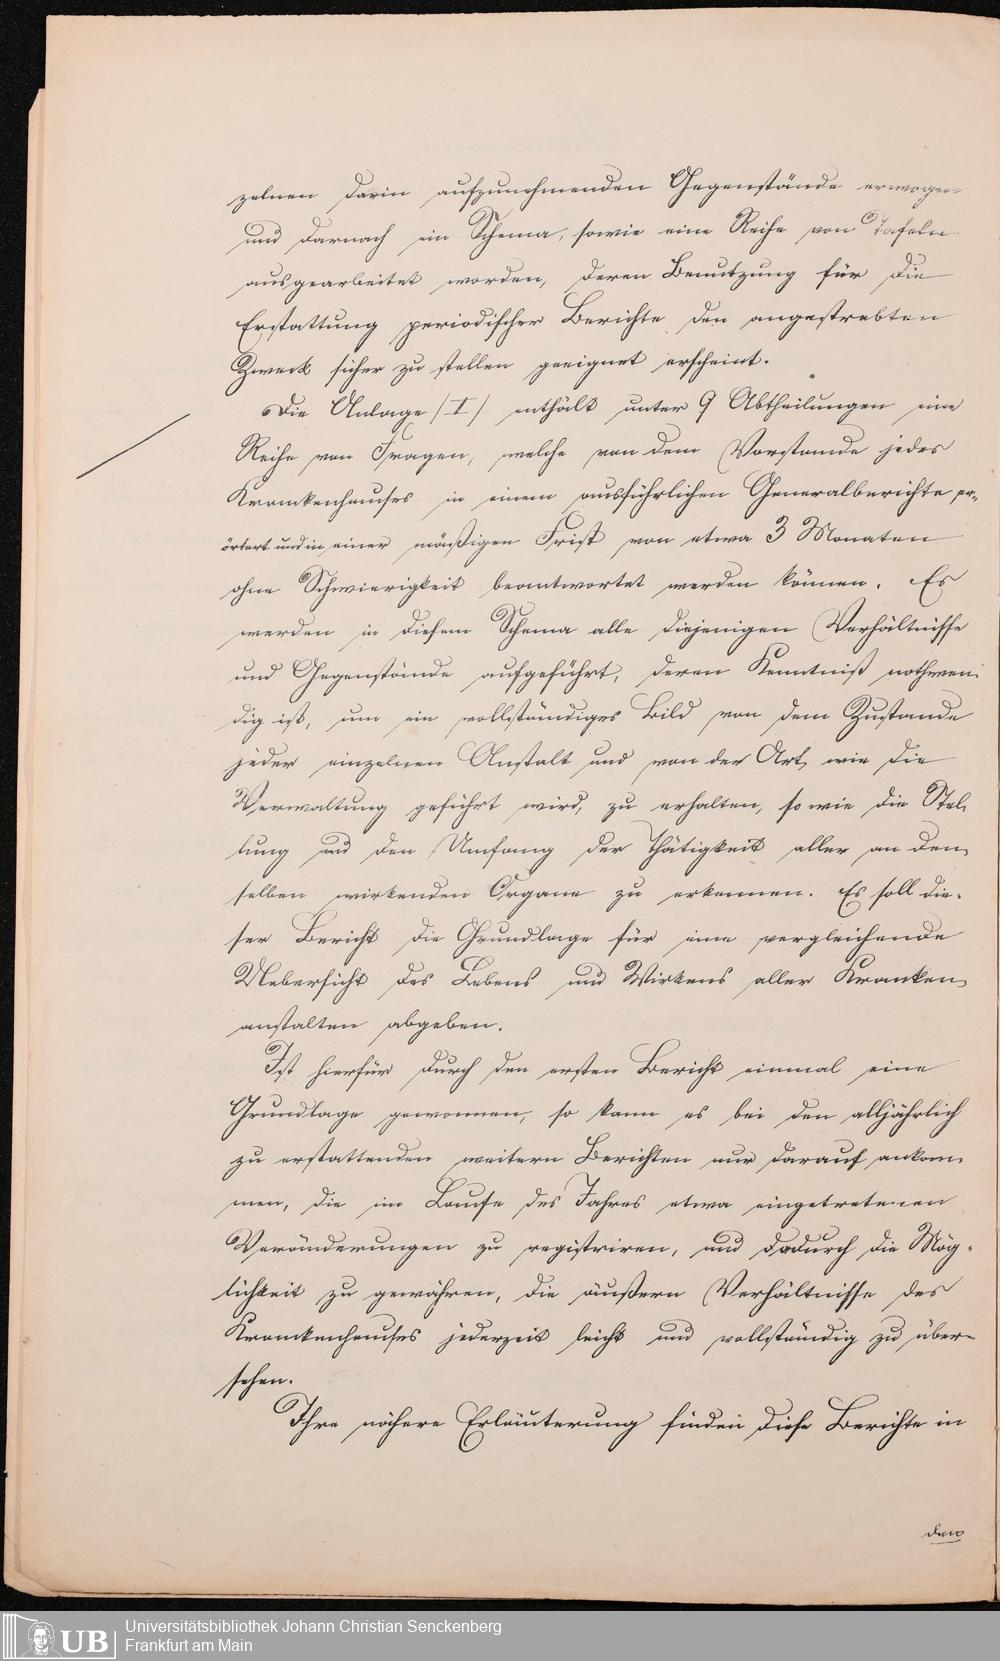 zelnen darin aufzunehmenden Gegenstände erwogen
und darnach ein Schema, sowie eine Reihe von Tafeln
ausgearbeitet worden, deren Benutzung für die
Erstattung periodischer Berichte den angestrebten
Zweck sicher zu stellen geeignet erscheint.
Die Anlage (I) enthält unter 9 Abtheilungen eine
Reihe von Fragen, welche von dem Vorstande jedes
Krankenhauses in einem ausführlichen Generalberichte er-
örtert und in einer mäßigen Frist von etwa 3 Monaten
ohne Schwierigkeit beantwortet werden können. Es
werden in diesem Schema alle diejenigen Verhältnisse
und Gegenstände aufgeführt, deren Kenntniß nothwen-
dig ist, um ein vollständiges Bild von dem Zustande
jeder einzelnen Anstalt und von der Art, wie die
Verwaltung geführt wird, zu erhalten, so wie die Stel-
lung und den Umfang der Thätigkeit aller an den-
selben wirkenden Organe zu erkennen. Es soll die-
ser Bericht die Grundlage für eine vergleichende
Uebersicht des Lebens und Wirkens aller Kranken-
anstalten abgeben.
Ist hierfür durch den ersten Bericht einmal eine
Grundlage gewonnen, so kann es bei den alljährlich
zu erstattenden weitern Berichten nur darauf ankom-
men, die im Laufe des Jahres etwa eingetretenen
Veränderungen zu registriren, und dadurch die Mög-
lichkeit zu gewähren, die äußern Verhältnisse des
Krankenhauses jederzeit leicht und vollständig zu über-
sehen.
Ihre nähere Erläuterung finden diese Berichte in
den
UB
Universitätsbibliothek Johann Christian Senckenberg
Frankfurt am Main